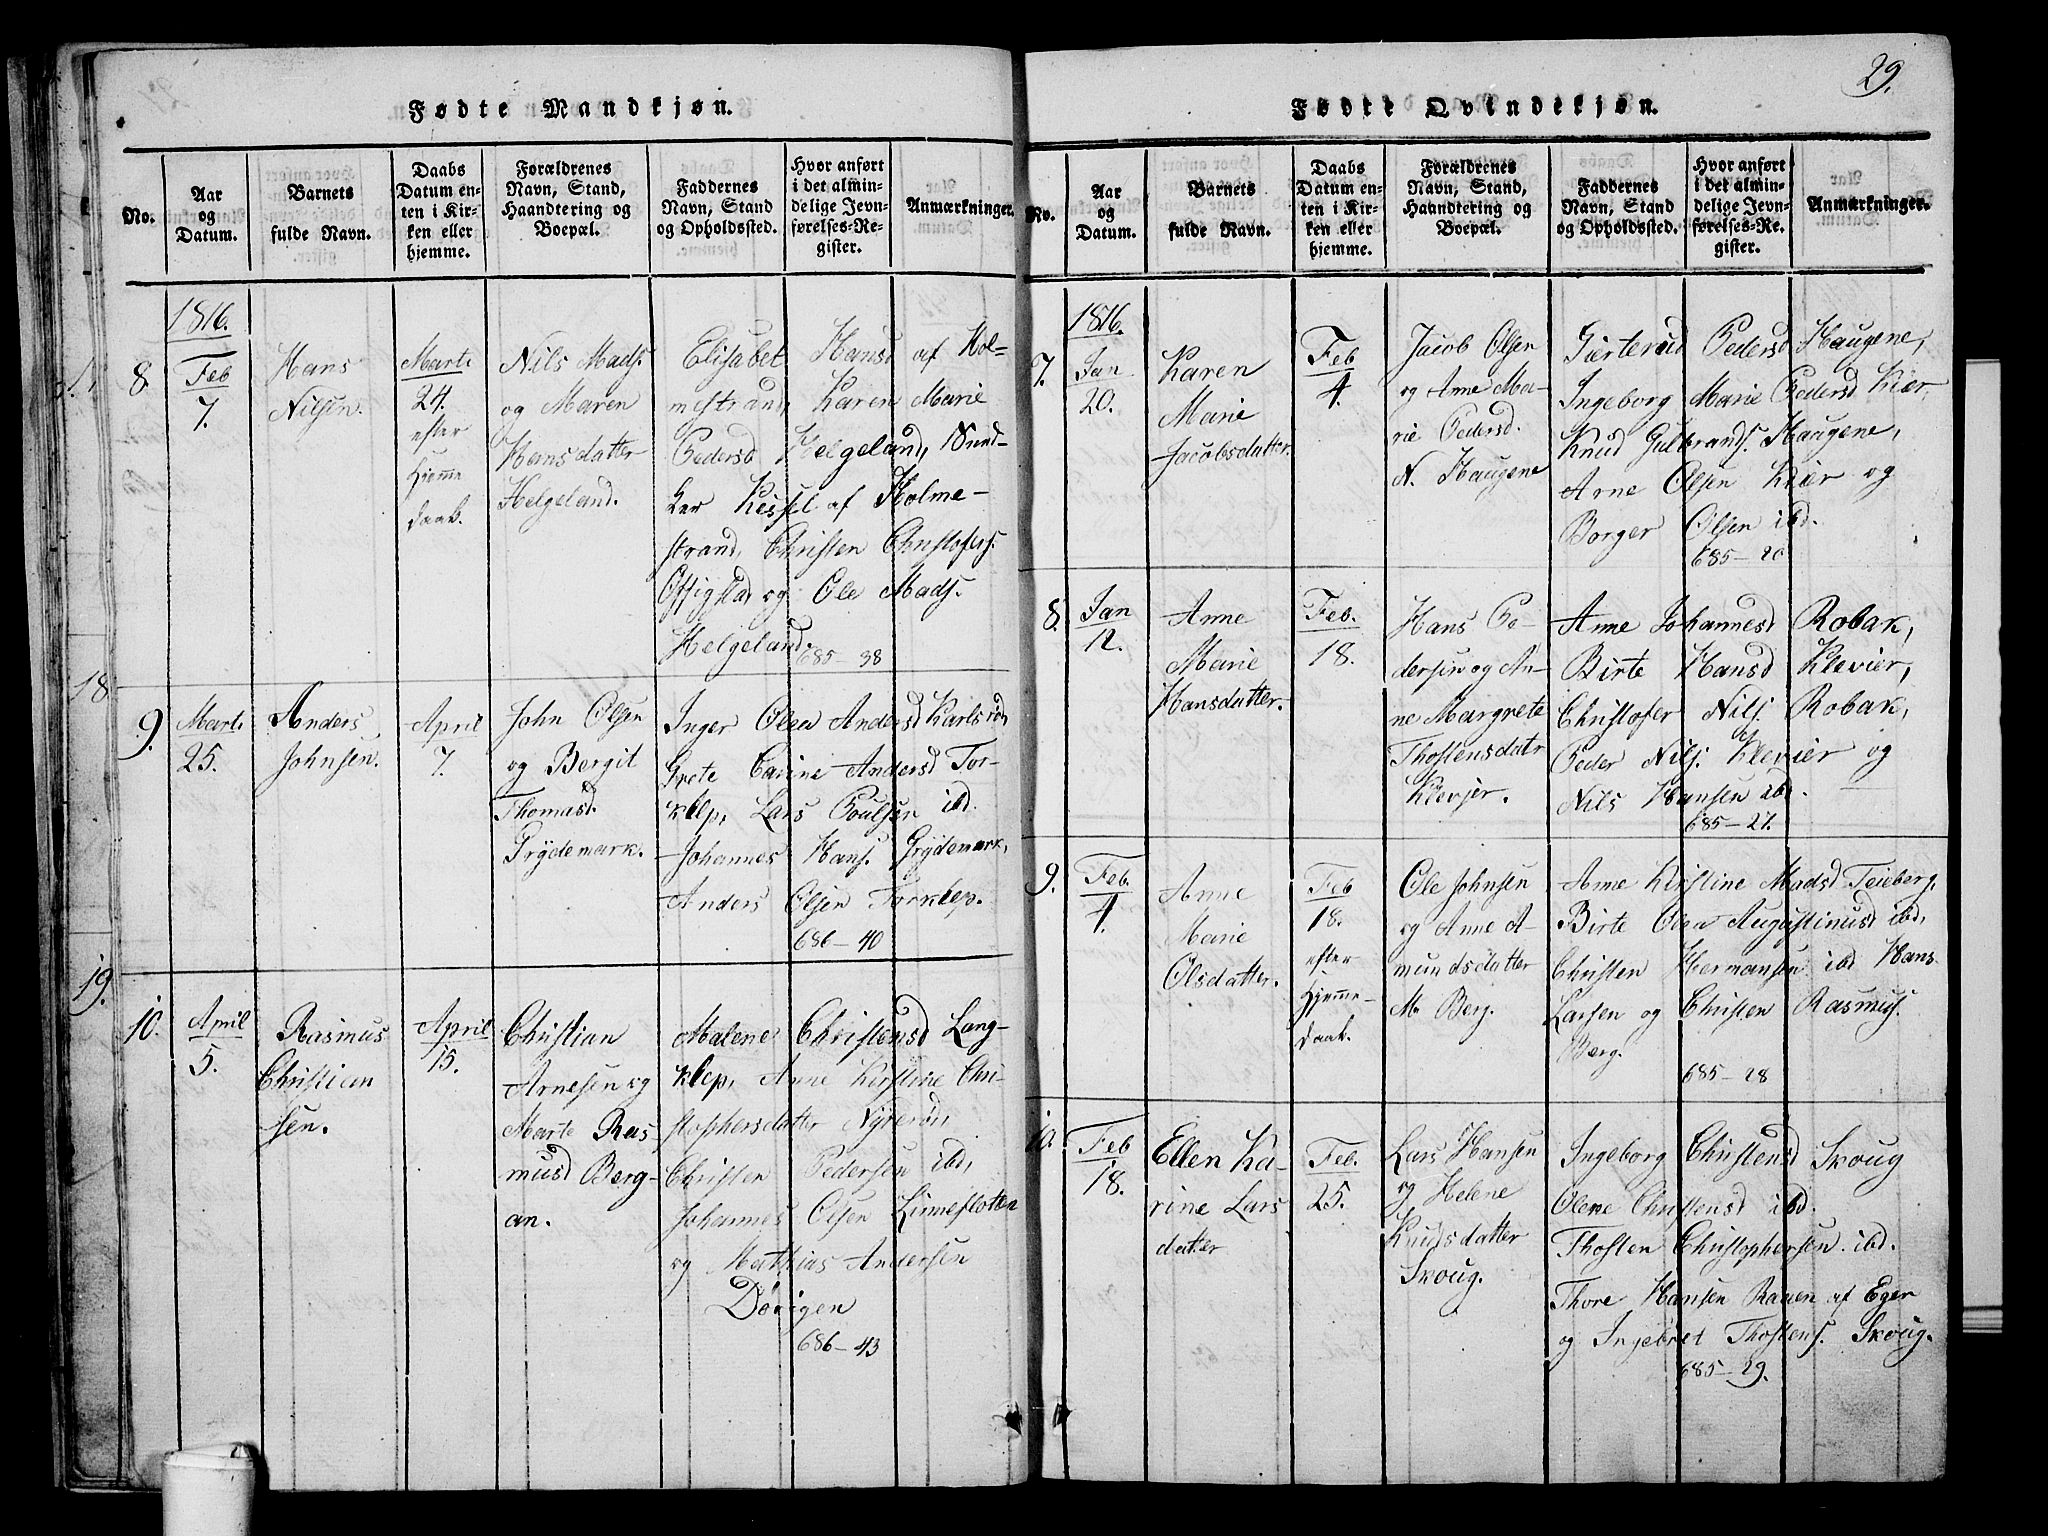 Fødte Mandkjøn.
No.
Aar
og
Datum.
Barnets
fulde Navn.
Daabs
Datum en-
ten i Kir-
ken eller
hjemme.
Forældrenes
Navn, Stand,
Haandtering og
Boepæl.
Faddernes
Navn, Stand
og Opholdssted.
Hvor anført
i det almin-
delige Jevn-
førelses-Re-
gister.
Anmærkninger.
1816.
8
Feb
7.
Hans
Nilsen.
Marti
24.
efter
Hjemme
daab.
Nils Mads.
og Maren
Hansdatter
Helgeland.
Elisabet Hansd af Hol=
mestrand, Karen Marie
Pedersd Helgeland,
Kessel af Holme-
strand, Christen Christofers.
og Ole Mads.
Helgeland.
685-38
9.
Marti
25.
Anders
Johnsen.
April
7.
John Olsen
og Bergit
Thomasd.
Prydemark.
Inger Olea Andersd Karlsrød,
Grete Carine Andersd Tor-
klep, Lars Poulsen ibd.
Johannes Hans. Grydemark,
Anders Olsen Torklep.
686-40
10.
April
5.
Rasmus
Christian
sen.
April
15.
Christian
Arnesen og
Marte Ras-
musd Berg-
an.
Malene Christensd Lang-
klep, Anne Kirstine Chri-
stophersdatter Nyrerød,
Christen Pedersen ibd,
Johannes Olsen Linnestolten
og Mathias Andersen
686-43
18
19.
29.
Fødte Qvindekjøn.
No.
Aar
og
Datum.
Barnets
fulde Navn.
Daabs
Datum en-
ten i Kir-
ken eller
hjemme.
Forældrenes
Navn, Stand,
Haandtering og
Boepæl.
Faddernes
Navn, Stand
og Opholdssted.
Hvor anført
i det almin-
delige Jevn-
førelses-Re-
gister.
Anmærkninger.
1816.
7.
Jan
20.
Karen
Marie
Jacobsdatter.
Feb
4.
Jacob Olsen
og Anne Ma-
rie Pedersd.
N. Haugene
Pedersd Haugene,
Ingeborg Marie Pedersd Kier,
Knud Gulbrands. Haugene,
Arne Olsen Kier og
Borger Olsen ibd.
685-20
8.
Jan
12.
Anne
Marie
Hansdatter.
Feb.
18.
Hans Pe-
dersen og An-
ne Margrete
Thostensdatr
Klevjer.
Anne Johannesd Robak,
Birte Hansd Klevier,
Christofer Nils. Robak,
Peder Nils. Klevier og
Nils Hansen ibd.
685-27.
9.
Feb.
4.
Anne
Marie
Olsdatter.
Feb
18.
efter
Hjemme-
daab.
Ole Johnsen
og Anne A-
mundsdatter
M. Berg.
Anne Kirstine Madsd Teieberg,
Birte Olea Augustinusd ibd,
Christen Hermansen ibd Hans
Larsen og Christen Rasmus.
Berg.
685-28
10.
Feb
18.
Ellen Ka-
rine Lars
datter
Feb.
25.
Lars Hansen
og Helene
Knudsdatter
Skoug.
Ingeborg Christensd Skoug
Olene Christensd ibd.
Thosten Christophersen ibd.
Thore Hansen Raaen af Eger
og Ingebret Thostens. Skoug.
685-29.